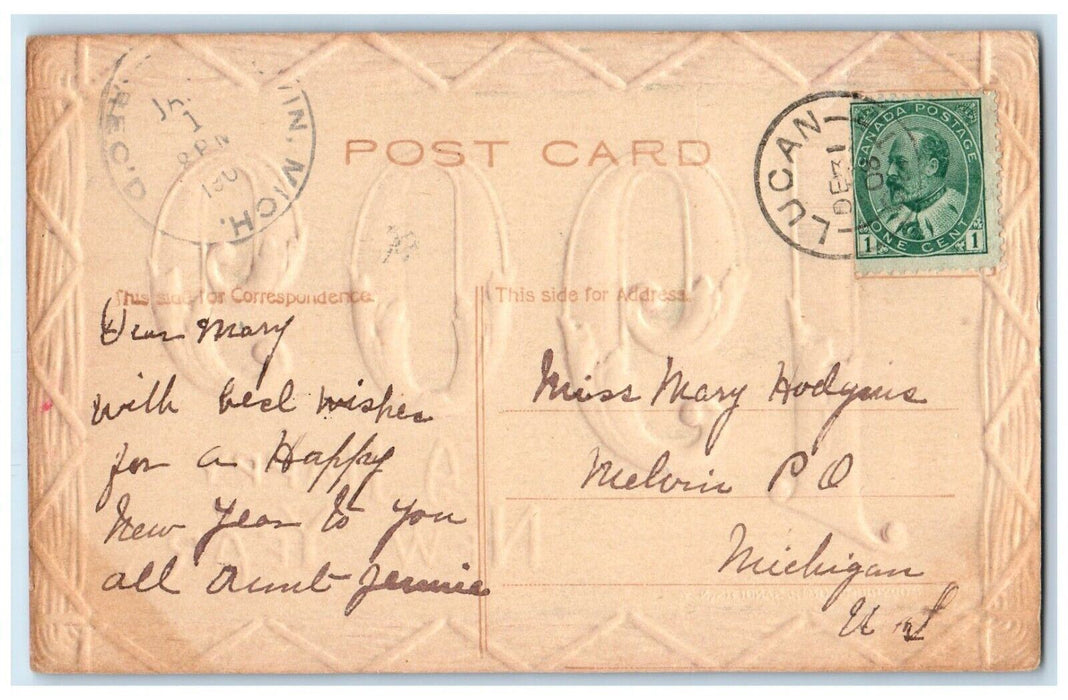 VIN. MICH.
REC'D.
1
8 PM
190
POST CARD
LUCAN
DE 31
08
CANADA POSTAGE
1 ONE CENT 1
This side for Correspondence.
This side for Address.
Dear Mary
with best wishes
for a Happy
New Year to you
all Aunt Jennie
Miss Mary Hodgins
Melvin P O
Michigan
U S
1909
A
NEW YEAR